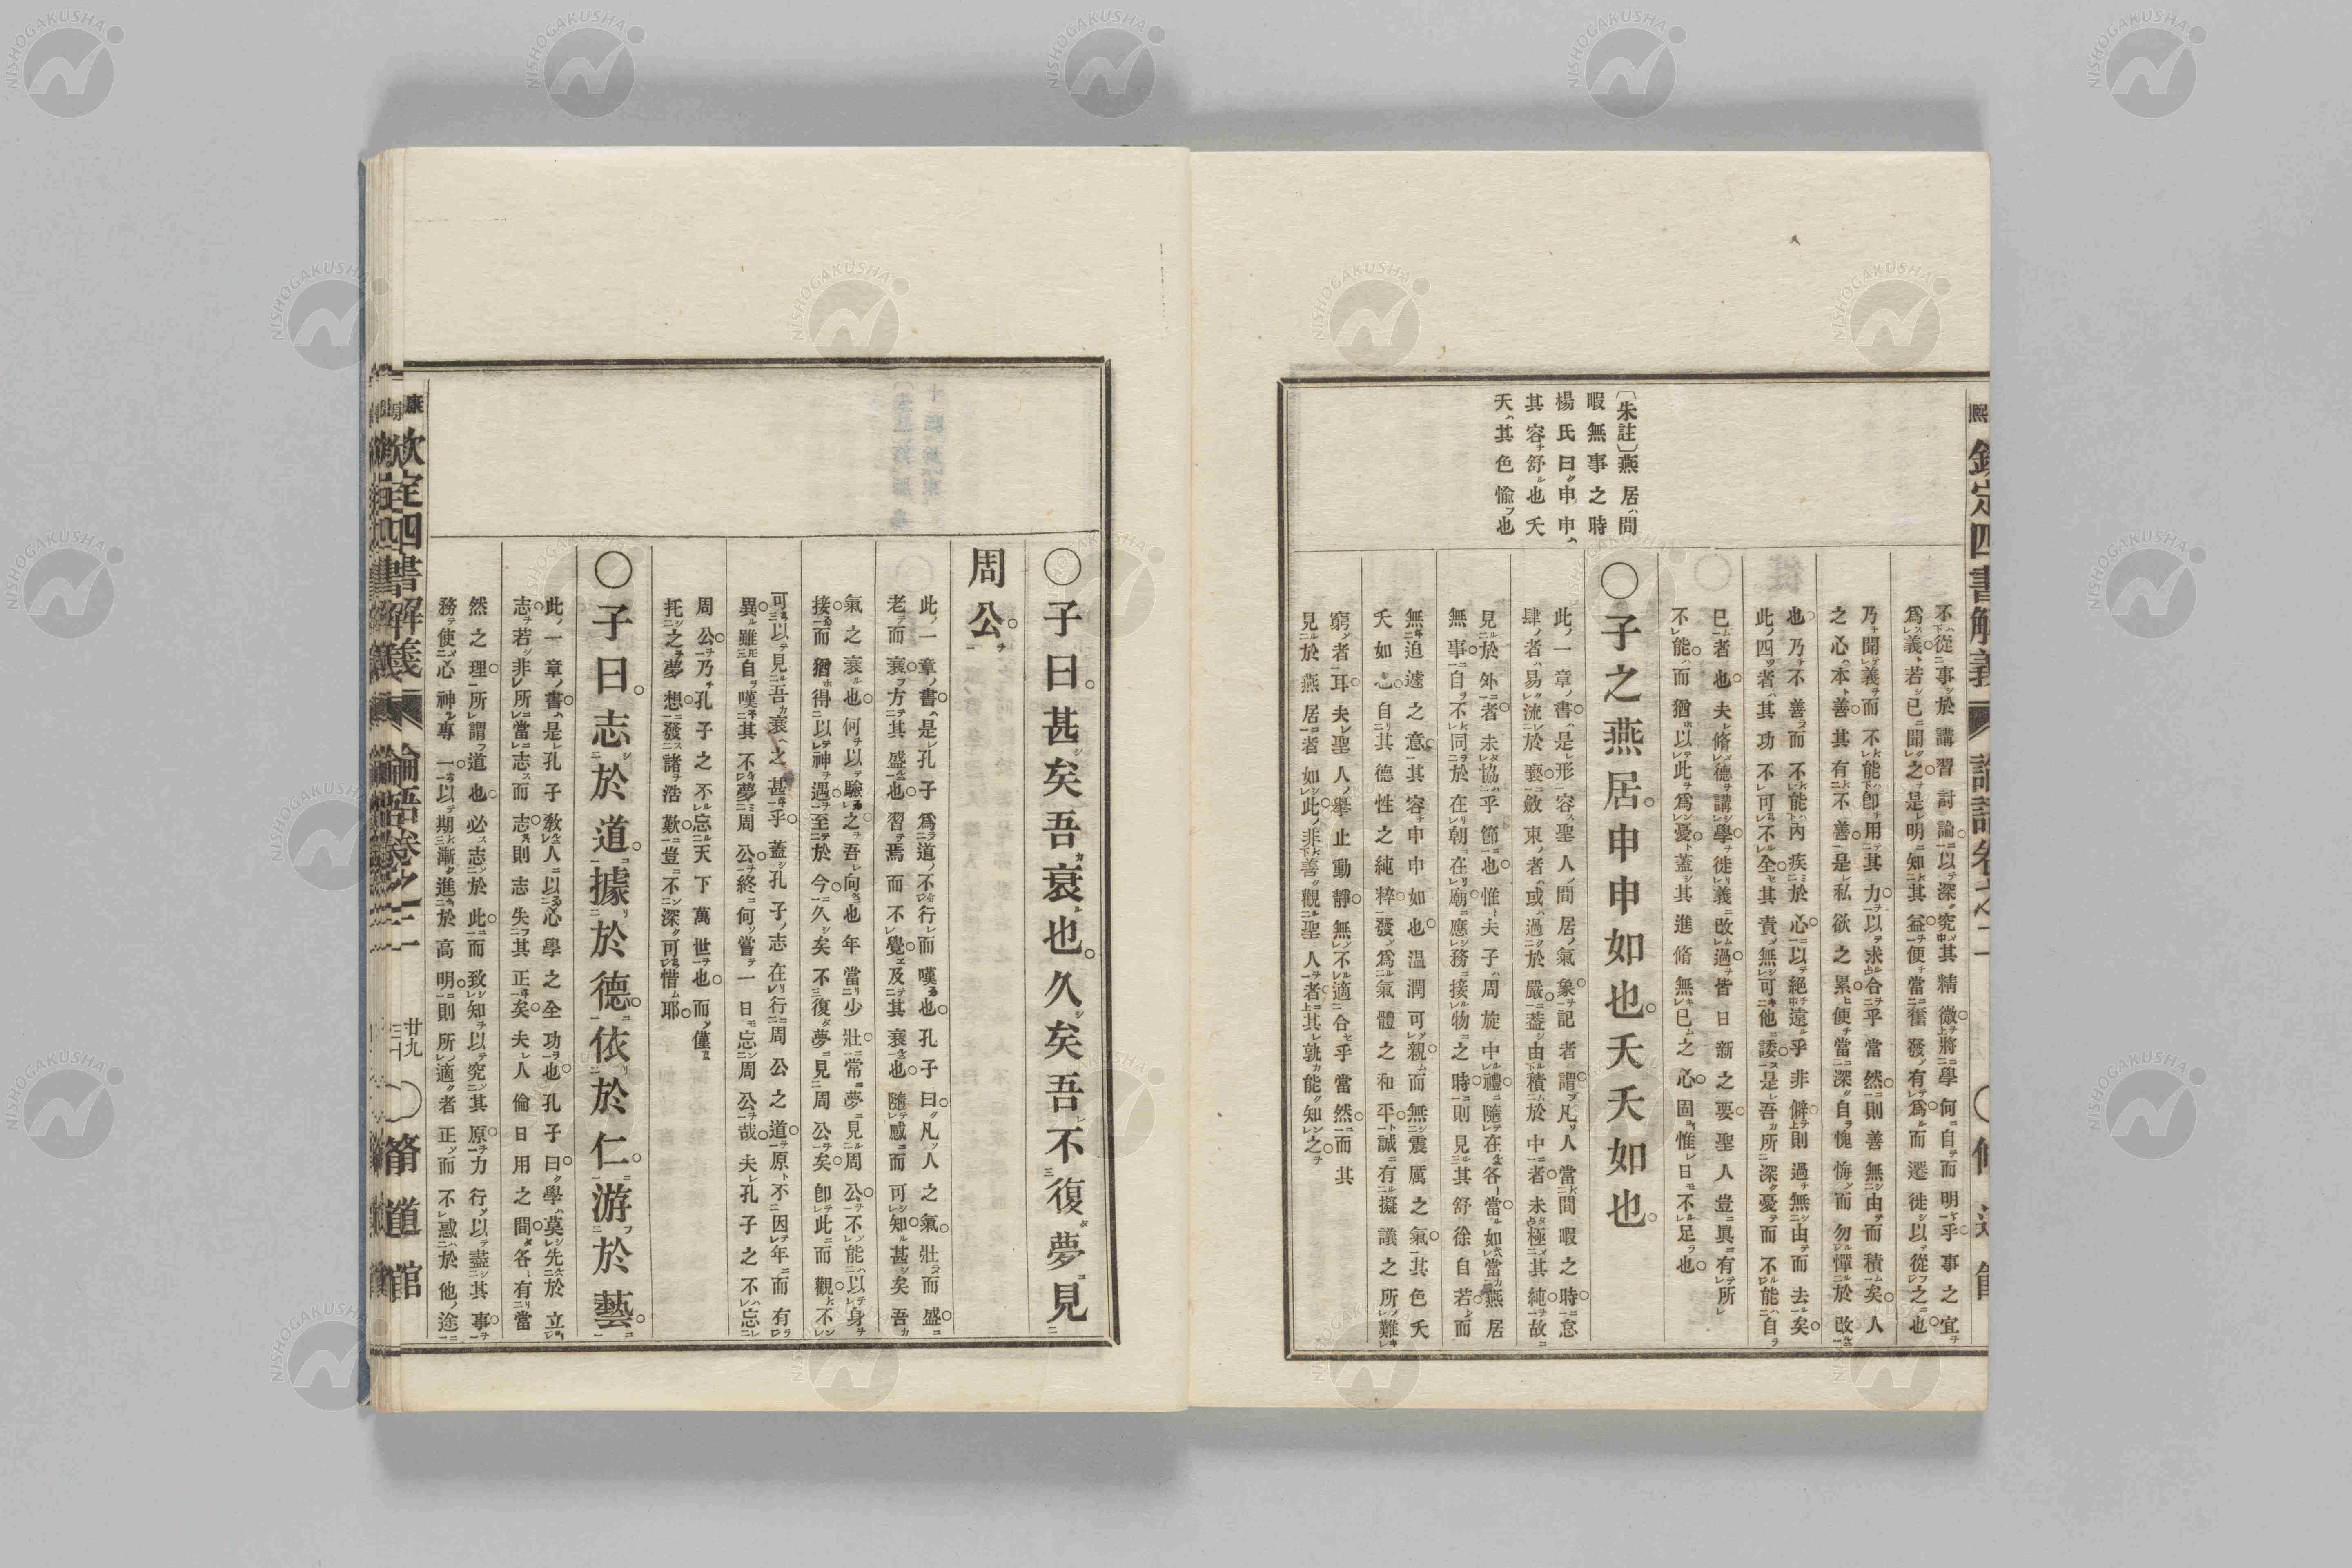 不從事於講習討論以深究其精微將學何自而明乎事之宜
爲義若已聞之是明知其益便當奮發有爲而遷徙以從之也
乃聞義而不能卽用其力以求合乎當然則善無由而積矣人
之心本善其有不善是私欲之累便當深自愧悔而勿憚於改
也乃不善而不能內疚於心以絕遠乎非僻則過無由而去矣
此四者其功不可不全其責無可他諉是吾所深憂而不能自
已者也夫脩德講學徙義改過皆日新之要聖人豈眞有所
不能而猶以此爲憂蓋其進脩無已之心固惟日不足也
〔朱註〕燕居間
暇無事之時
楊氏曰申申
其容舒也夭
夭其色愉也
〇子之燕居申申如也夭夭如也
此一章書是形容聖人間居氣象記者謂凡人當間暇之時怠
肆者易流於褻斂束者或過於嚴蓋由積於中者未極其純故
見於外者未協乎節也惟夫子周旋中禮隨在各當如當燕居
無事自不同於在朝在廟應務接物之時則見其舒徐自若而
無迫遽之意其容申申如也溫潤可親而無震厲之氣其色夭
夭如也自其德性之純粹發爲氣體之和平誠有擬議之所難
窮者耳夫聖人舉止動靜無不適合乎當然而其
見於燕居者如此非善觀聖人者其孰能知之
〇子曰甚矣吾衰也久矣吾不復夢見
周公
此一章書是孔子爲道不行而嘆也孔子曰凡人之氣壯而盛
老而衰方其盛也習焉而不覺及其衰也隨感而可知甚矣吾
氣之衰也何以驗之吾向也年當少壯常夢見周公不能以身
接而猶得以神遇至於今久矣不復夢見周公矣卽此而觀不
可以見吾衰之甚乎蓋孔子志在行周公之道原不因年而有
異雖自嘆其不夢周公終何嘗一日忘周公哉夫孔子之不忘
周公乃孔子之不忘天下萬世也而僅
托之夢想發諸浩歎豈不深可惜耶
〇子曰志於道據於德依於仁游於藝
此一章書是孔子敎人以心學之全功也孔子曰學莫先於立
志若非所當志而志則志失其正矣夫人倫日用之間各有當
然之理所謂道也必志於此而致知以究其原力行以盡其事
務使心神專一以期漸進於高明則所適者正而不惑於他途
欽定四書解義 論語卷之二 廿九 〇脩道館